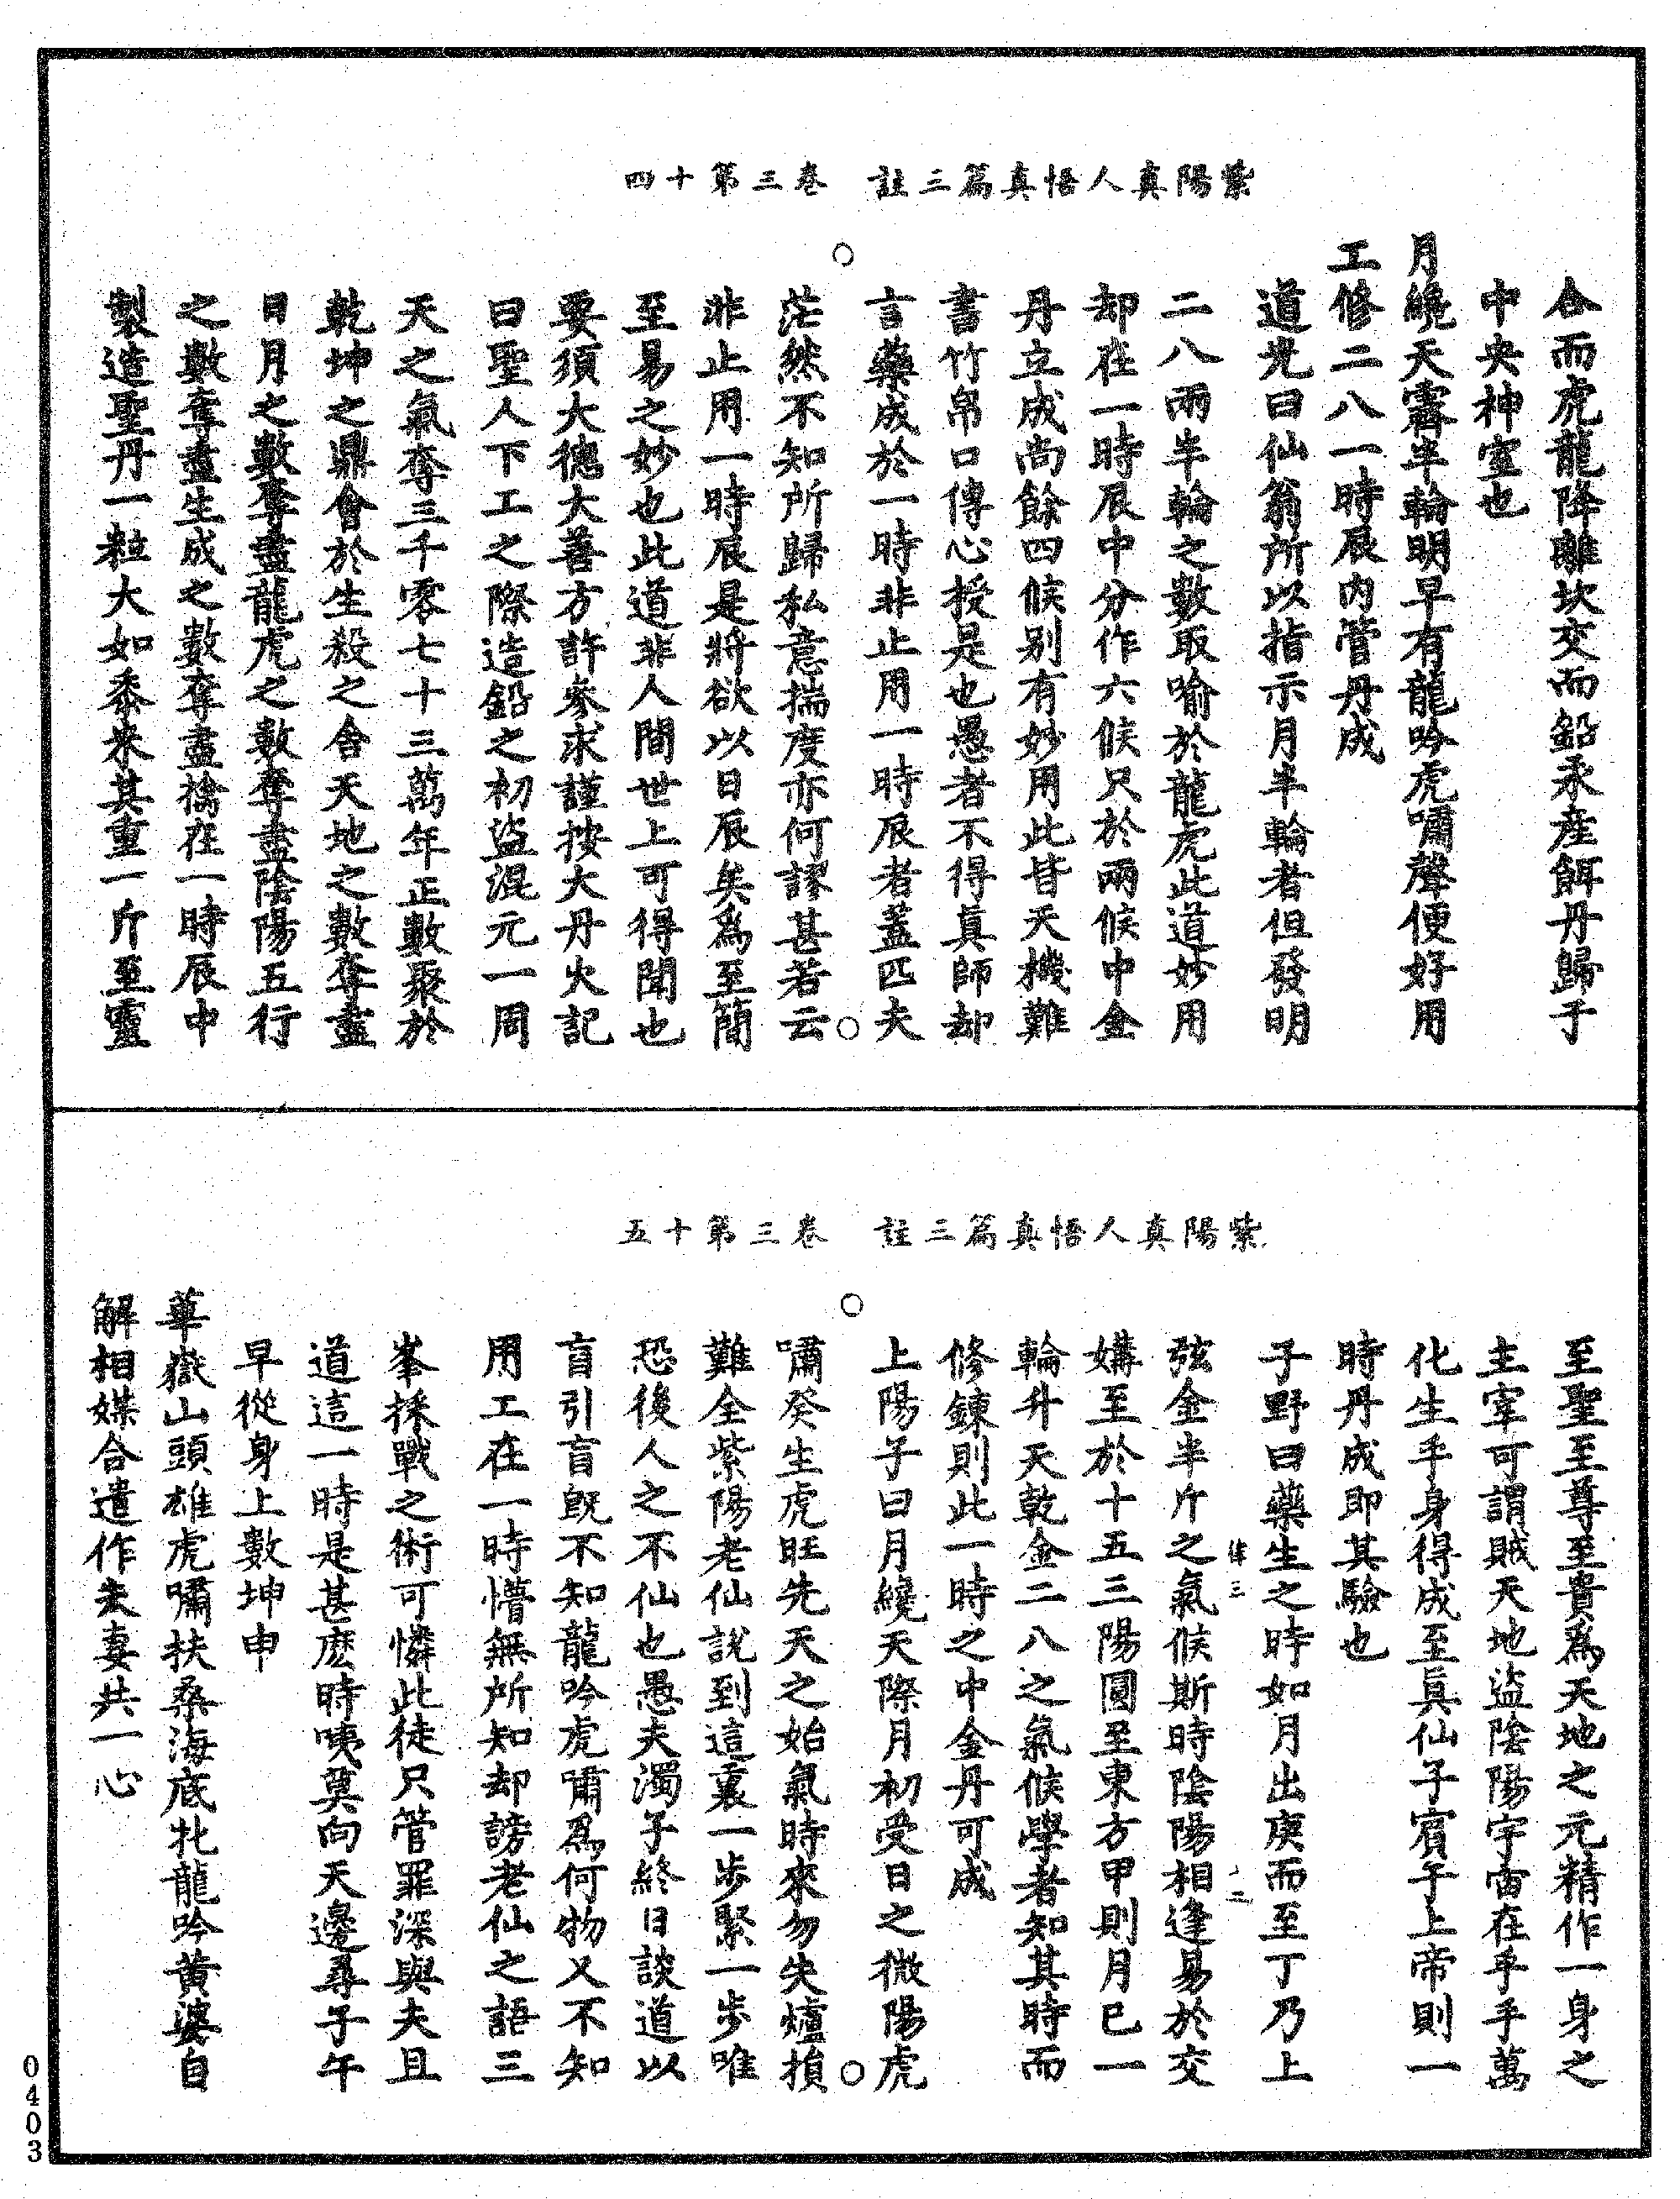 紫陽真人悟真篇三註　卷三第十四
合而虎龍降離坎交而鉛汞産餌丹歸于
中央神室也
月纔天霽半輪明早有龍吟虎嘯聲便好用
工修二八一時辰內管丹成
道光曰仙翁所以指示月半輪者但發明
二八兩半輪之數取喻於龍虎此道妙用
却在一時辰中分作六候只於兩候中金
丹立成尚餘四候別有妙用此皆天機難
書竹帛口傳心授是也愚者不得真師却
言藥成於一時非止用一時辰者蓋匹夫
茫然不知所歸私意揣度亦何謬甚若云
非止用一時辰是將欲以日辰矣爲至簡
至易之妙也此道非人間世上可得聞也
要須大德大善方許參求謹按大丹火記
曰聖人下工之際造鉛之初盜混元一周
天之氣奪三千零七十三萬年正數聚於
乾坤之鼎會於生殺之舍天地之數奪盡
日月之數奪盡龍虎之數奪盡陰陽五行
之數奪盡生成之數奪盡擒在一時辰中
製造聖丹一粒大如黍米其重一斤至靈
紫陽真人悟真篇三註　卷三第十五
至聖至尊至貴爲天地之元精作一身之
主宰可謂賊天地盜陰陽宇宙在乎手萬
化生乎身得成至真仙子賓于上帝則一
時丹成即其驗也
子野曰藥生之時如月出庚而至丁乃上
弦金半斤之氣候斯時陰陽相逢易於交
媾至於十五三陽圓至東方甲則月已一
輪升天乾金二八之氣候學者知其時而
修鍊則此一時之中金丹可成
上陽子曰月纔天際月初受日之微陽虎
嘯癸生虎旺先天之始氣時來勿失爐損
難全紫陽老仙說到這裏一步緊一步唯
恐後人之不仙也愚夫濁子終日談道以
盲引盲既不知龍吟虎嘯爲何物又不知
用工在一時懵無所知却謗老仙之語三
峯採戰之術可憐此徒只管罪深與夫且
道這一時是甚麽時咦莫向天邊尋子午
早從身上數坤申
華嶽山頭雄虎嘯扶桑海底牝龍吟黃婆自
解相媒合遣作夫妻共一心
0403